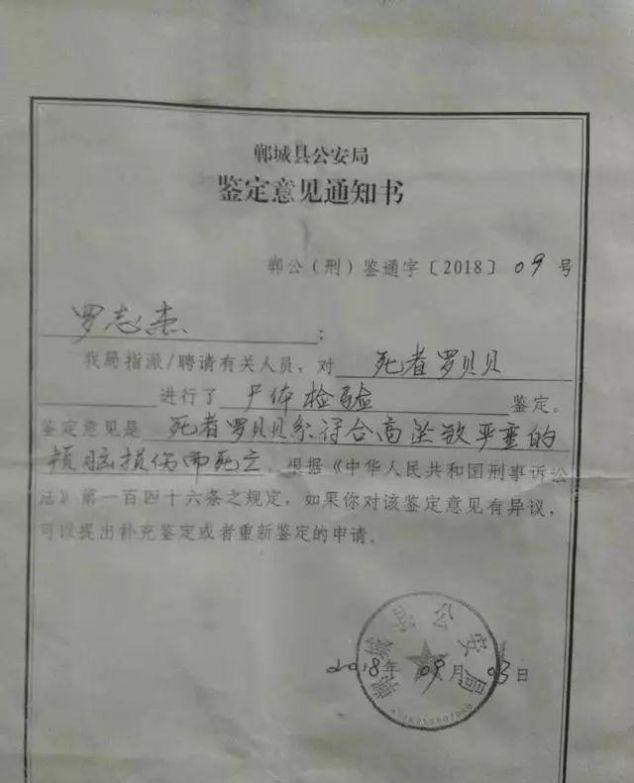 郸城县公安局
鉴定意见通知书
郸公（刑）鉴通字〔2018〕09号
罗志杰：
我局指派/聘请有关人员，对 死者罗贝贝
进行了 尸体检验 鉴定。
鉴定意见是 死者罗贝贝系符合高坠致严重的
颅脑损伤而死亡，根据《中华人民共和国刑事诉讼
法》第一百四十六条之规定，如果你对该鉴定意见有异议，
可以提出补充鉴定或者重新鉴定的申请。
郸城县公安局
2018年09月03日